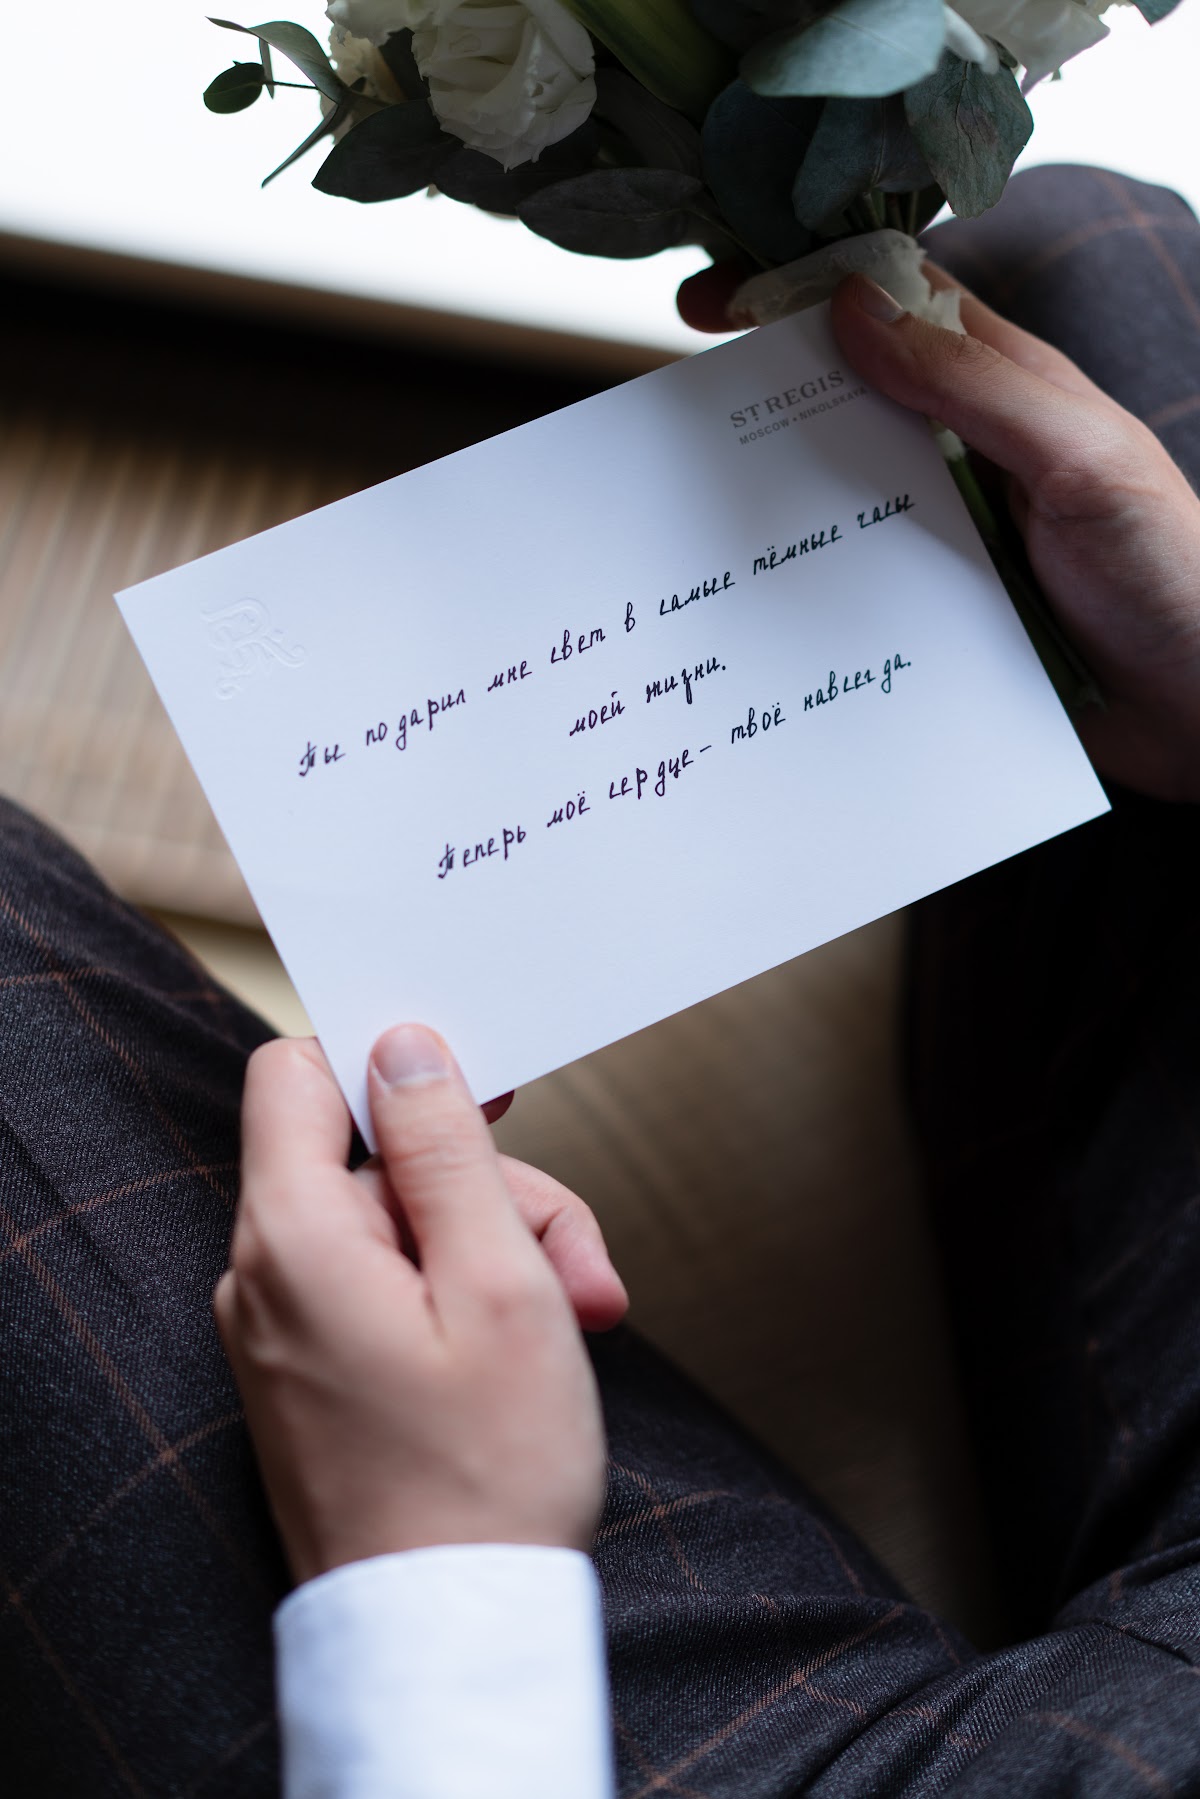 ST. REGIS
MOSCOW • NIKOLSKAYA
Ты подарил мне свет в самые тёмные часы
моей жизни.
Теперь моё сердце – твоё навсегда.